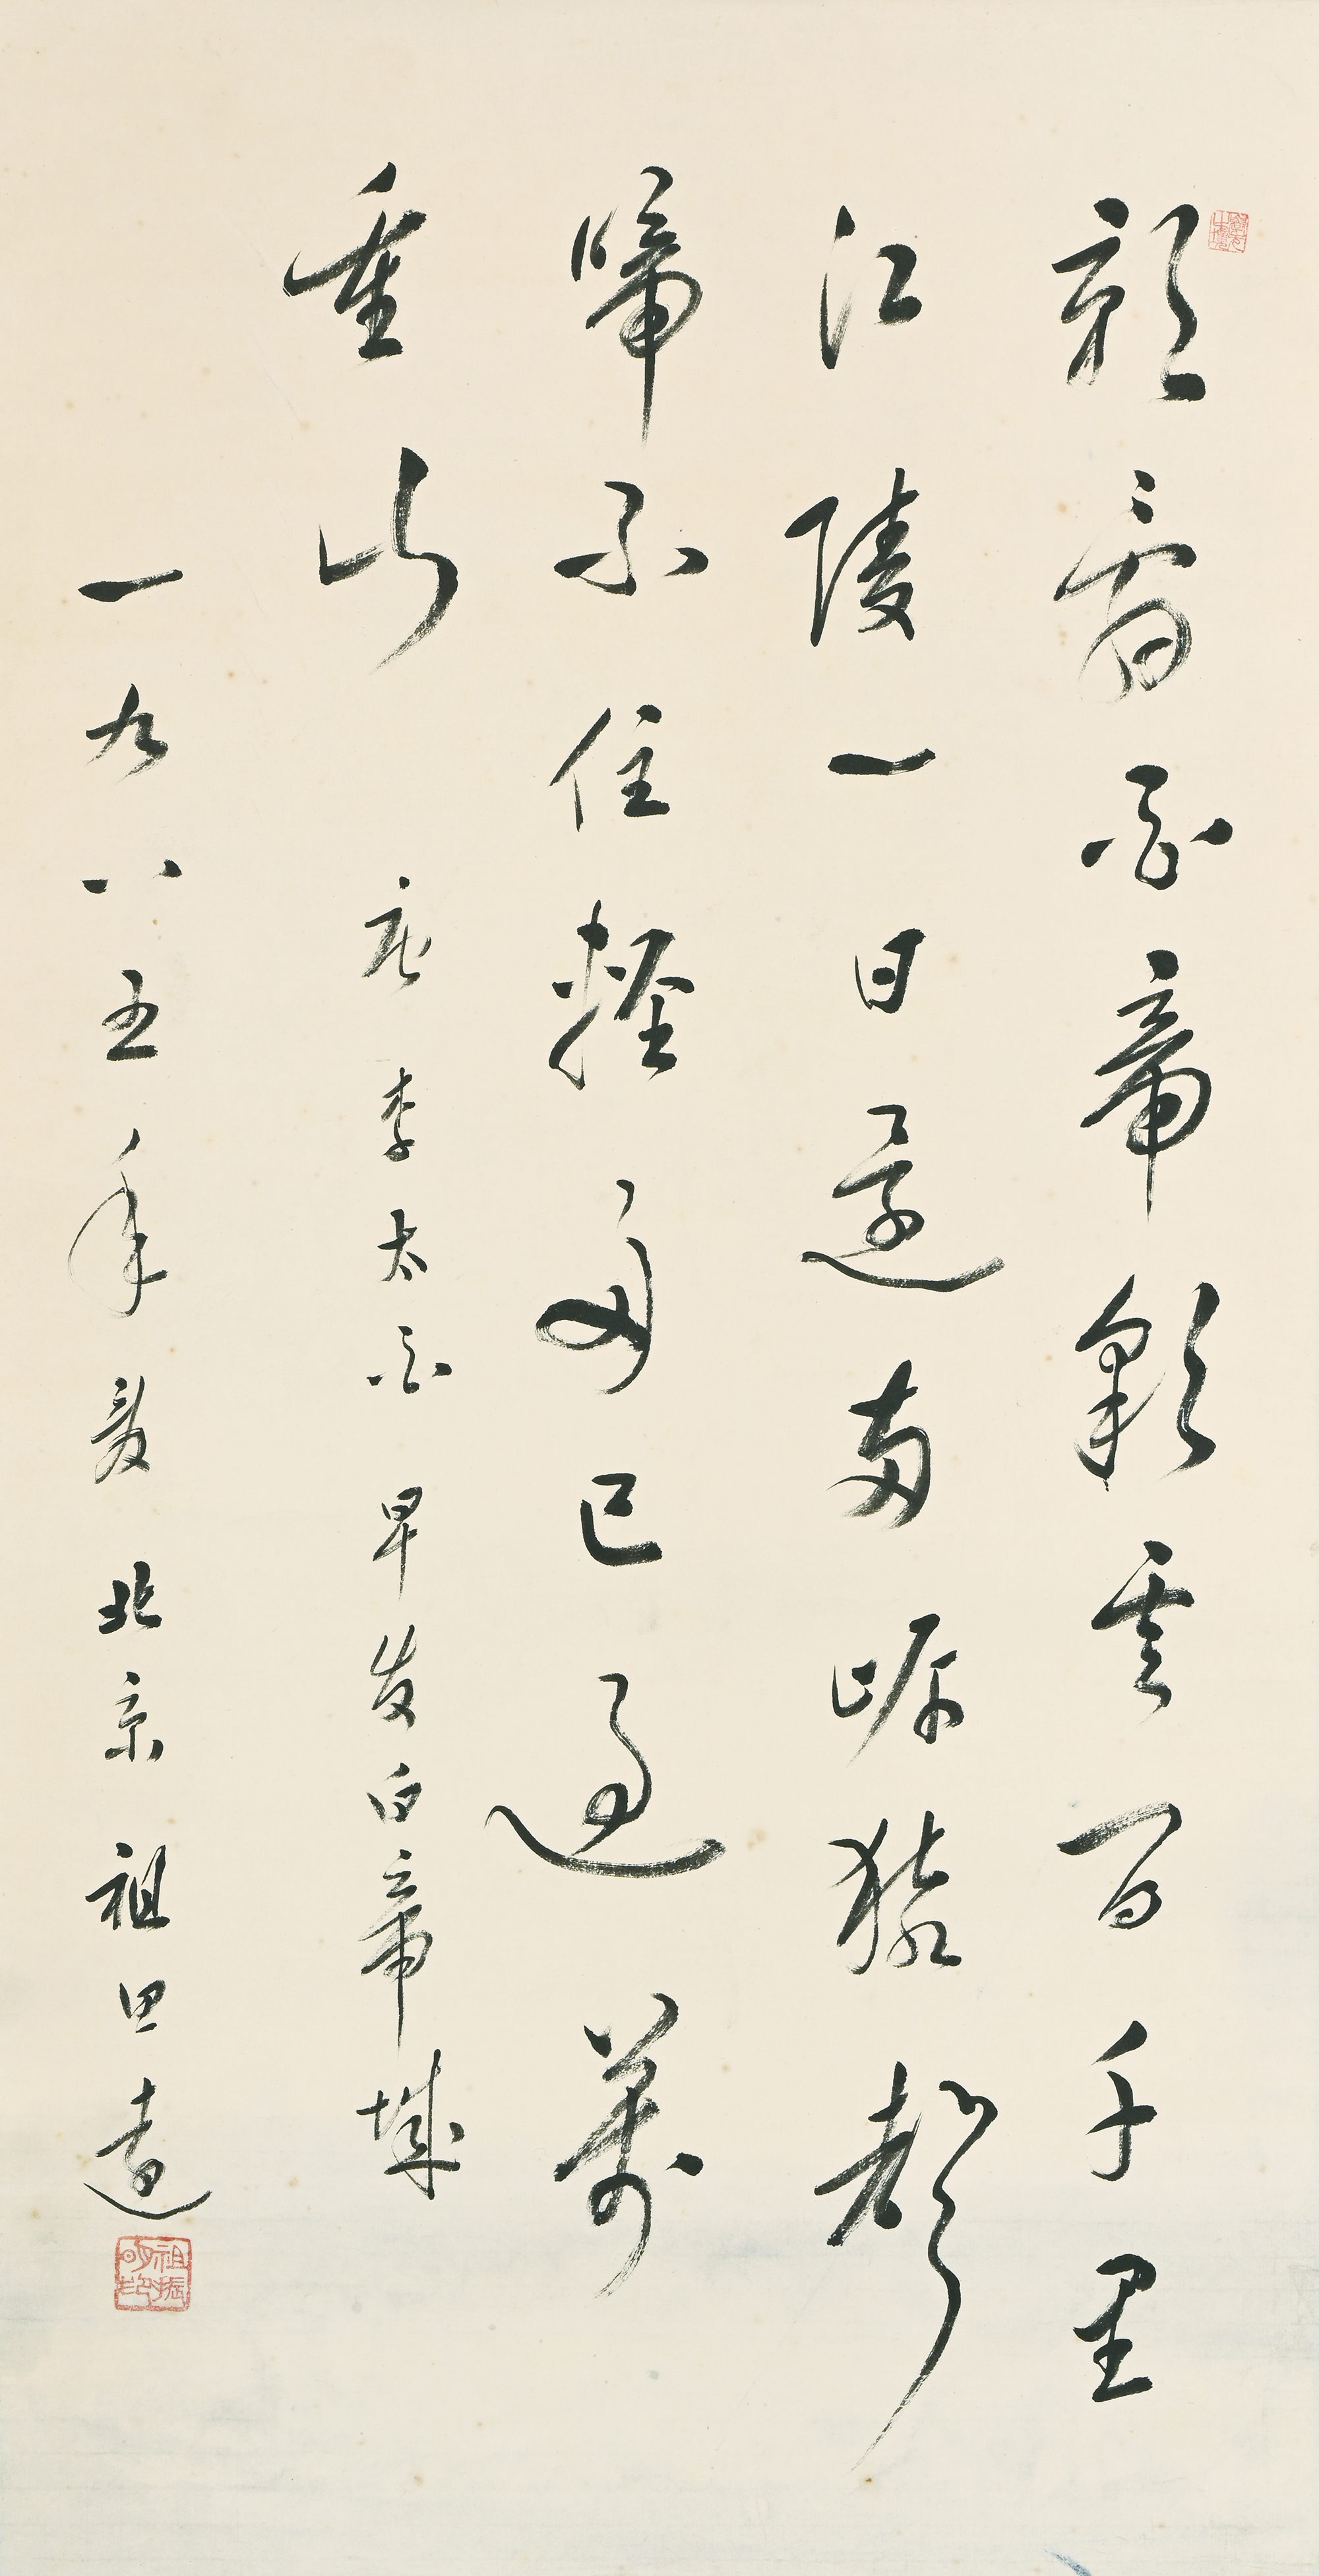 朝辭白帝彩雲間千里
江陵一日還兩岸猿聲
啼不住輕舟已過萬
重山
唐李太白早发白帝城
一九八五年 北京祖
祖振明印